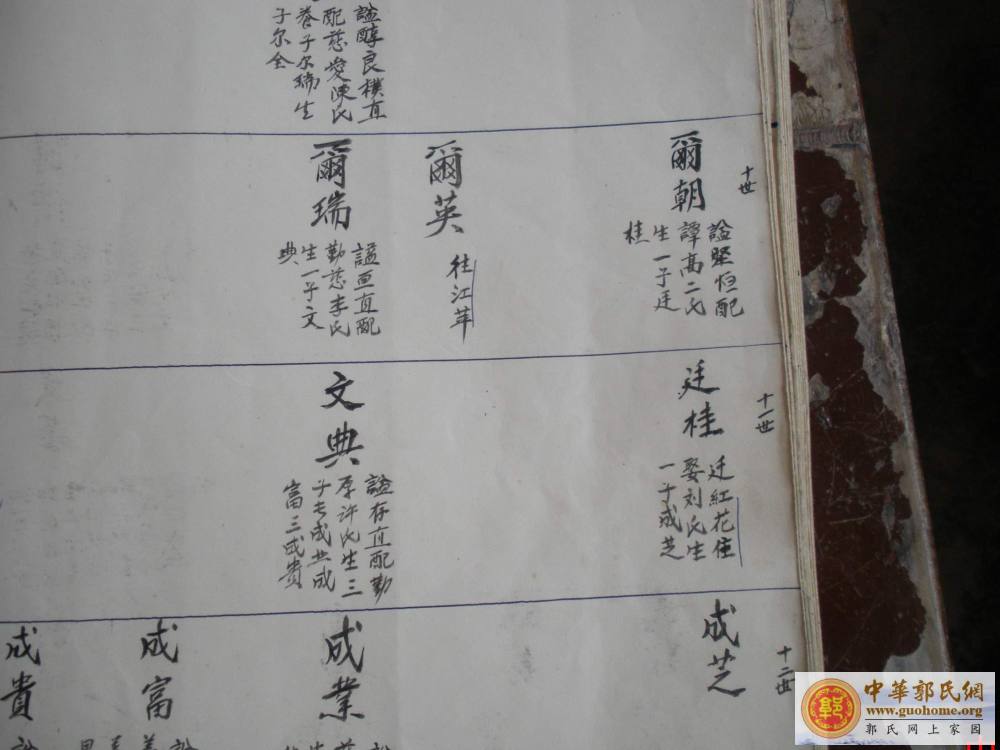 謚醇良樸直
配慈愛陳氏
養子尔瑞生
子尔全
十世
爾朝
謚堅恒配
譚高二氏
生一子廷
桂
爾英
往江苹
爾瑞
謚亜直配
勤慈李氏
生一子文
典
十一世
廷桂
廷紅花住
娶刘氏生
一子成芝
文典
謚存直配勤
厚許氏生三
子長成业成
富三成貴
十二世
成芝
成業
成富
成貴
中華郭氏網
www.guohome.org
郭氏网上家园